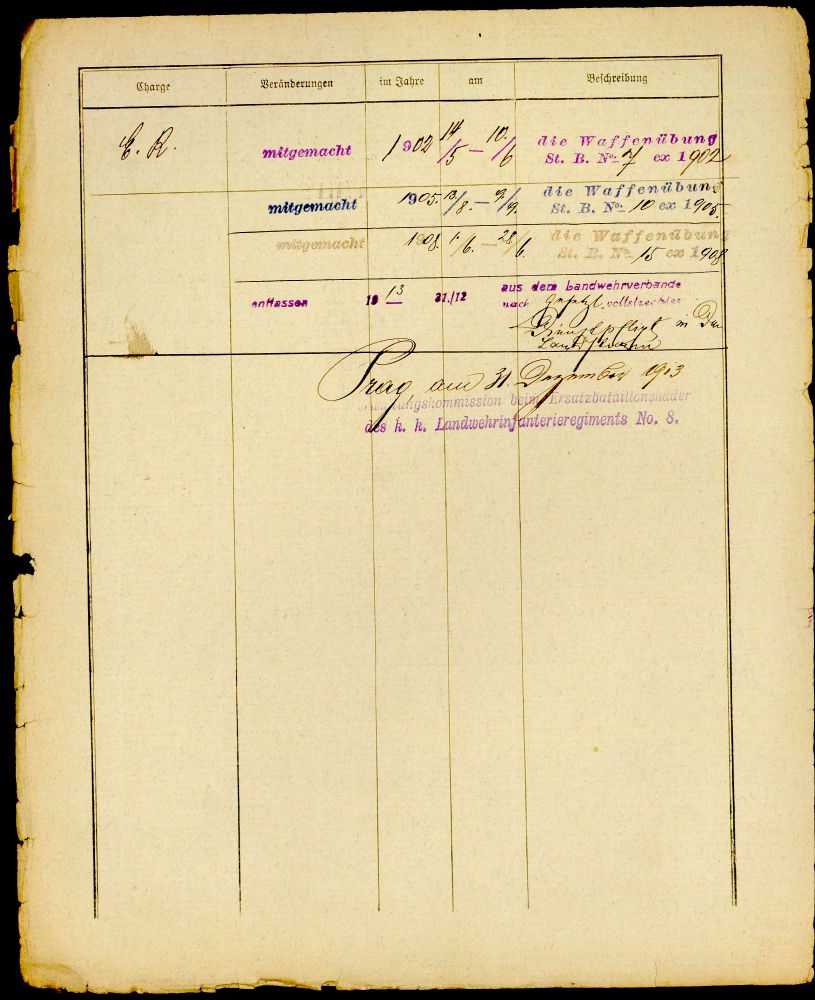 Charge Veränderungen im Jahre am Beschreibung
E. R. mitgemacht 1902 14/5 – 10./6 die Waffenübung
St. B. No. 7 ex 1902
mitgemacht 1905. 13/8. – 9/9. die Waffenübung
St. B. No. 10 ex 1905.
mitgemacht 1908. 1./6. – 28/6. die Waffenübung
St. B. No. 15 ex 1908
entlassen 1913 31./12 aus dem Landwehrverbande
nach gesetzl. vollstreckter
Dienstpflicht in den
Landsturm
Prag, am 31. Dezember 1913
beim Ersatzbataillonskader
des k. k. Landwehrinfanterieregiments No. 8.